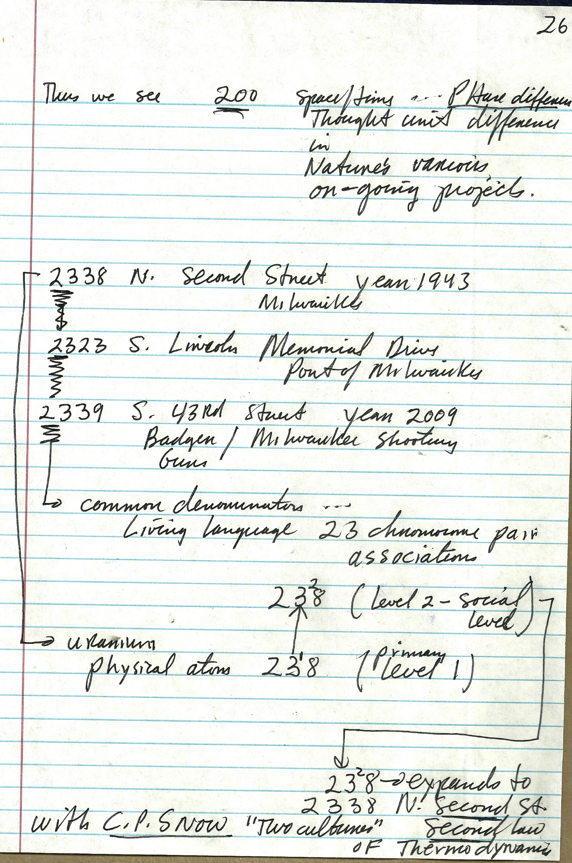 26
Thus we see 200 space/time ... PHase differen
Thought unit difference
in
Nature's various
on-going projects.
2338 N. Second Street year 1943
Milwaukee
2323 S. Lincoln Memorial Drive
Port of Milwaukee
2339 S. 43rd Street year 2009
Badger / Milwaukee Shooting
Guns
common denominators ...
Living language 23 chromosome pair
associations
23²8 (Level 2 - social
level)
uranium
physical atom 23¹8 (Primary
Level 1)
23²8 → expands to
2338 N. Second St.
with C.P. SNOW "Two cultures" Second law
OF Thermodynamic